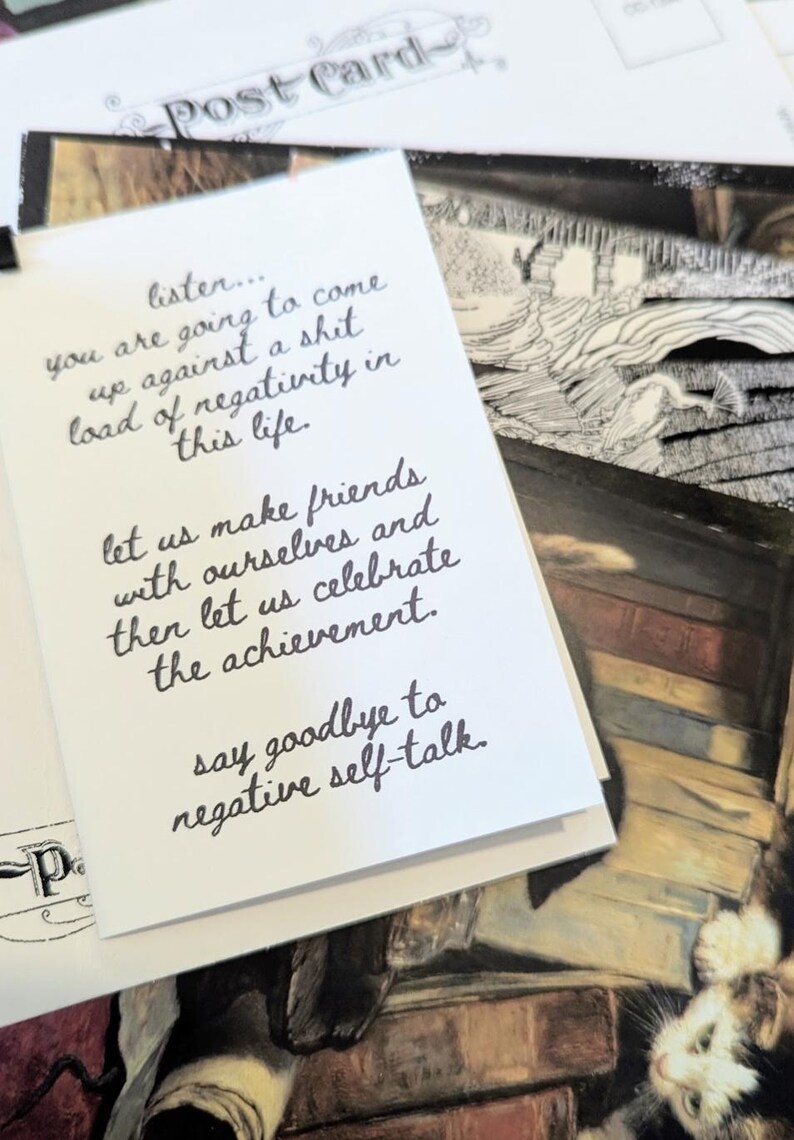 Post Card
listen...
you are going to come
up against a shit
load of negativity in
this life.
let us make friends
with ourselves and
then let us celebrate
the achievement.
say goodbye to
negative self-talk.